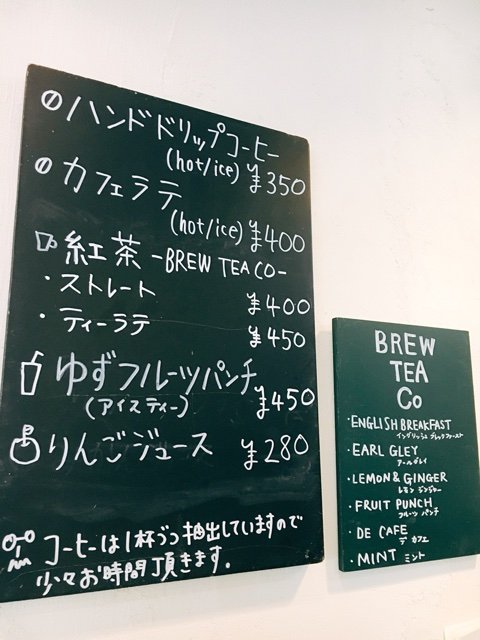 ハンドドリップコーヒー
(hot/ice) ¥350
カフェラテ
(hot/ice) ¥400
紅茶 -BREW TEA CO-
・ストレート ¥400
・ティーラテ ¥450
ゆずフルーツパンチ
(アイスティー) ¥450
りんごジュース ¥280
コーヒーは1杯づつ抽出していますので
少々お時間頂きます.
BREW
TEA
Co
・ENGLISH BREAKFAST
イングリッシュ ブレックファースト
・EARL GLEY
アールグレイ
・LEMON & GINGER
レモン ジンジャー
・FRUIT PUNCH
フルーツ パンチ
・DE CAFE
デ カフェ
・MINT ミント